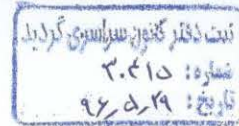 ثبت دفتر کانون سراسری گردید
شماره: ۳۰۴۱۵
تاریخ: ۹۶٫۵٫۲۹